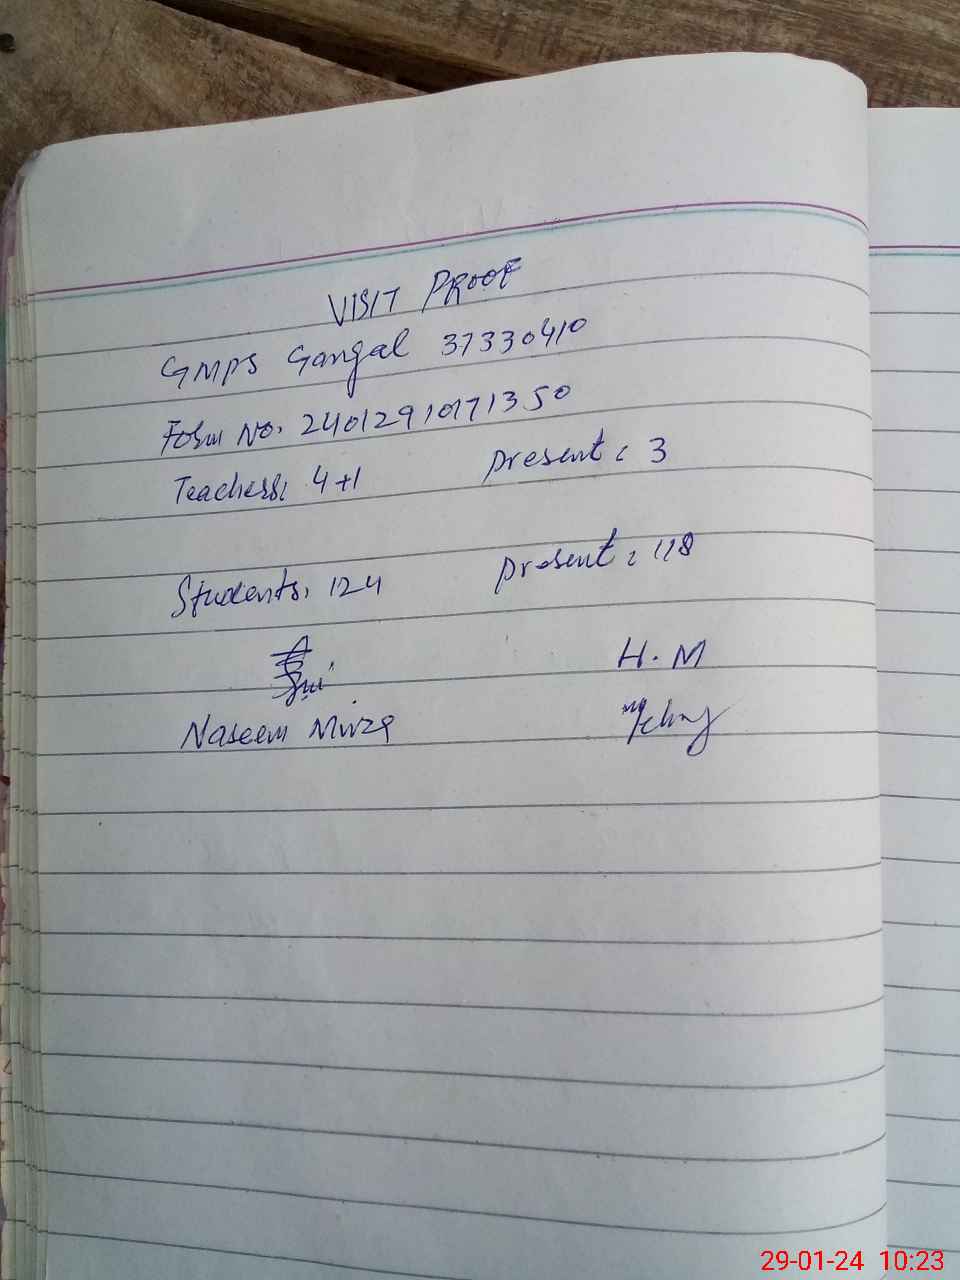 VISIT PROOF
GMPS Gangal 37330410
Form No. 24012910171350
Teachers: 4+1 present: 3
Students. 124 present: 118
H.M
Naseem Mirza
29-01-24 10:23